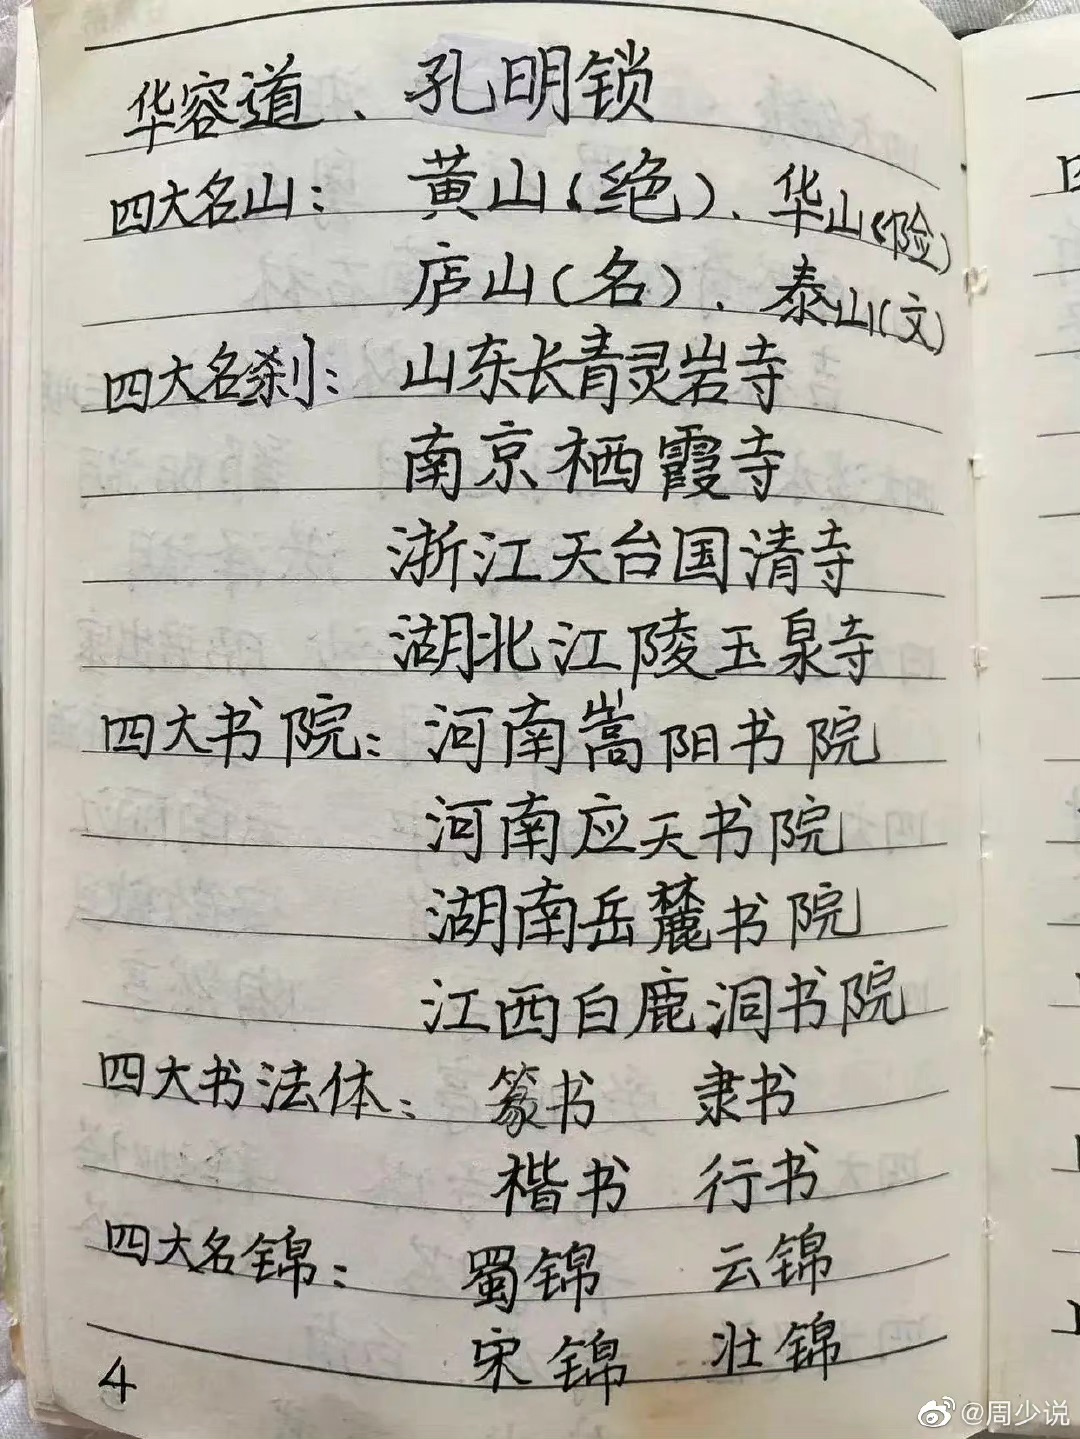 华容道、孔明锁
四大名山：黄山(绝)、华山(险)
庐山(名)、泰山(文)
四大名刹：山东长青灵岩寺
南京栖霞寺
浙江天台国清寺
湖北江陵玉泉寺
四大书院：河南嵩阳书院
河南应天书院
湖南岳麓书院
江西白鹿洞书院
四大书法体：篆书 隶书
楷书 行书
四大名锦：蜀锦 云锦
宋锦 壮锦
4
@周少说